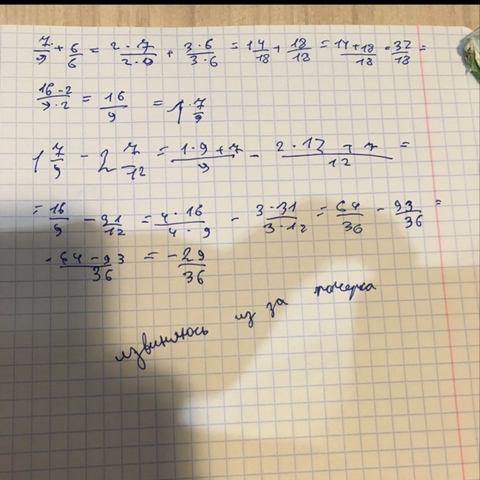 7/9 + 6/6 = 2·7/2·9 + 3·6/3·6 = 14/18 + 18/18 = 14+18/18 = 32/18 =
16·2/9·2 = 16/9 = 1 7/9
1 7/9 - 2 7/12 = 1·9+7/9 - 2·12+7/12 =
= 16/9 - 31/12 = 4·16/4·9 - 3·31/3·12 = 64/36 - 93/36 =
= 64-93/36 = -29/36
извиняюсь из за почерка